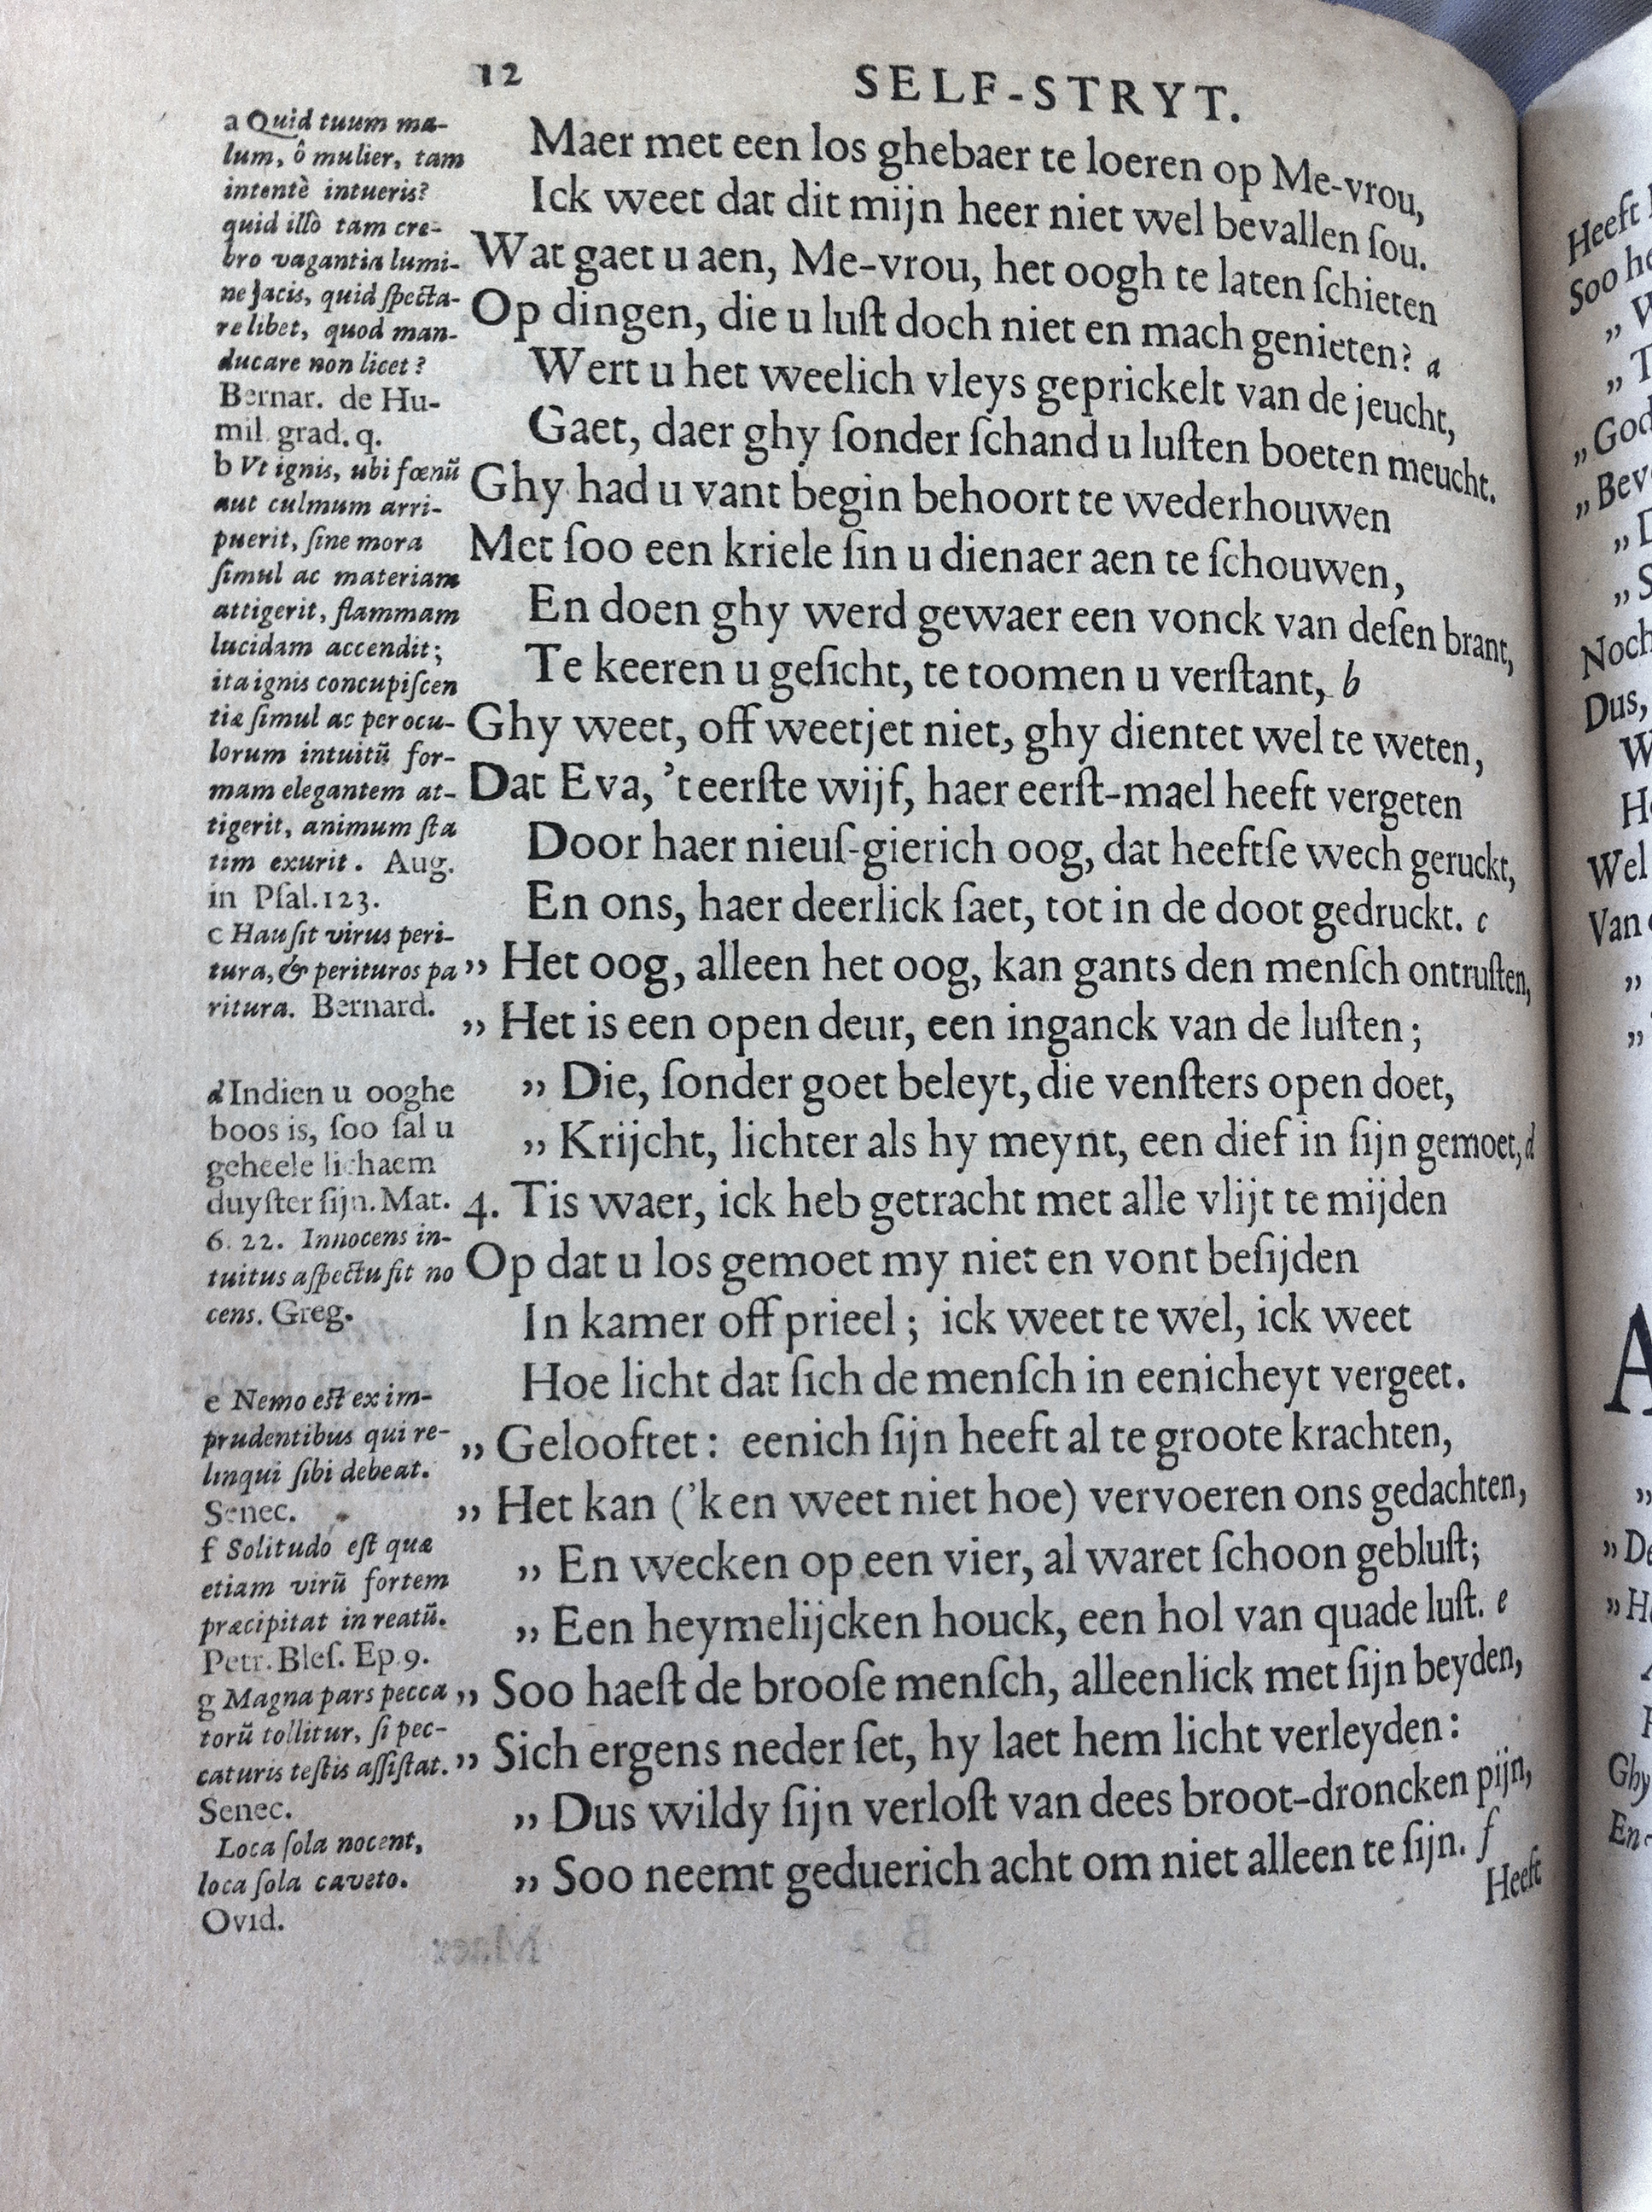 12
SELF-STRYT.
a Quid tuum ma-
lum, ô mulier, tam
intentè intueris?
quid illò tam cre-
bro vagantia lumi-
ne jacis, quid ſpecta-
re libet, quod man-
ducare non licet?
Bernar. de Hu-
mil. grad. q.
b Vt ignis, ubi fœnũ
aut culmum arri-
puerit, ſine mora
ſimul ac materiam
attigerit, flammam
lucidam accendit;
ita ignis concupiſcen
tiæ ſimul ac per ocu-
lorum intuitũ for-
mam elegantem at-
tigerit, animum ſta
tim exurit. Aug.
in Pſal. 123.
c Hauſit virus peri-
tura, & perituros pa
ritura. Bernard.
d Indien u ooghe
boos is, ſoo ſal u
geheele lichaem
duyſter ſijn. Mat.
6. 22. Innocens in-
tuitus aſpectu fit no
cens. Greg.
e Nemo eſt ex im-
prudentibus qui re-
linqui ſibi debeat.
Senec.
f Solitudo eſt quæ
etiam virũ fortem
præcipitat in reatũ.
Petr. Bleſ. Ep. 9.
g Magna pars pecca
torũ tollitur, ſi pec-
caturis teſtis aſſiſtat.
Senec.
Loca ſola nocent,
loca ſola caveto.
Ovid.
Maer met een los ghebaer te loeren op Me-vrou,
Ick weet dat dit mijn heer niet wel bevallen ſou.
Wat gaet u aen, Me-vrou, het oogh te laten ſchieten
Op dingen, die u luſt doch niet en mach genieten? a
Wert u het weelich vleys geprickelt van de jeucht,
Gaet, daer ghy ſonder ſchand u luſten boeten meucht.
Ghy had u vant begin behoort te wederhouwen
Met ſoo een kriele ſin u dienaer aen te ſchouwen,
En doen ghy werd gewaer een vonck van deſen brant,
Te keeren u geſicht, te toomen u verſtant, b
Ghy weet, off weetjet niet, ghy dientet wel te weten,
Dat Eva, 't eerſte wijf, haer eerſt-mael heeft vergeten
Door haer nieuſ-gierich oog, dat heeftſe wech geruckt,
En ons, haer deerlick ſaet, tot in de doot gedruckt. c
„ Het oog, alleen het oog, kan gants den menſch ontruſten,
„ Het is een open deur, een inganck van de luſten;
„ Die, ſonder goet beleyt, die venſters open doet,
„ Krijcht, lichter als hy meynt, een dief in ſijn gemoet, d
4. Tis waer, ick heb getracht met alle vlijt te mijden
Op dat u los gemoet my niet en vont beſijden
In kamer off prieel; ick weet te wel, ick weet
Hoe licht dat ſich de menſch in eenicheyt vergeet.
„ Gelooftet: eenich ſijn heeft al te groote krachten,
„ Het kan ('k en weet niet hoe) vervoeren ons gedachten,
„ En wecken op een vier, al waret ſchoon gebluſt;
„ Een heymelijcken houck, een hol van quade luſt. e
„ Soo haeſt de brooſe menſch, alleenlick met ſijn beyden,
„ Sich ergens neder ſet, hy laet hem licht verleyden:
„ Dus wildy ſijn verloſt van dees broot-droncken pijn,
„ Soo neemt geduerich acht om niet alleen te ſijn. f
Heeft
Heeft
Soo
„
„
„ God
„ Bev
„
„
Noch
Dus,
Wel
Van
„
„
A
„
„ De
„
Ghy
En